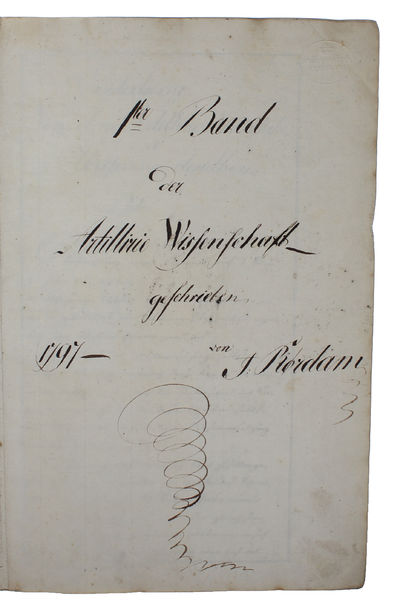 1ster Band
der
Artillirie Wissenschaft
geschrieben
1797 — von J. Rördam